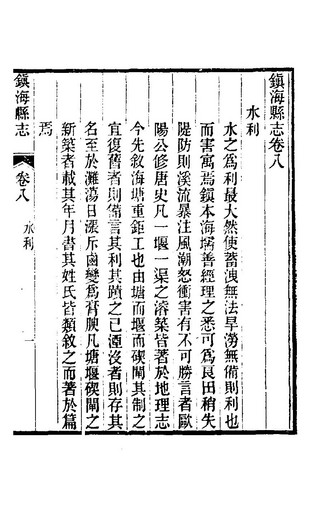 鎮海縣志卷八
水利
水之爲利最大然使蓄洩無法旱澇無備則利也
而害寓焉鎮本海堧善經理之悉可爲良田稍失
隄防則溪流暴注風潮怒衝害有不可勝言者歐
陽公修唐史凡一堰一渠之濬築皆著於地理志
今先敘海塘重鉅工也由塘而堰而碶閘其制之
宜復舊者則備言其利其蹟之已湮沒者則存其
名至於灘蕩日漲斥鹵變爲膏腴凡塘堰碶閘之
新築者載其年月書其姓氏皆類敘之而著於篇
焉
鎮海縣志
卷八
水利
一